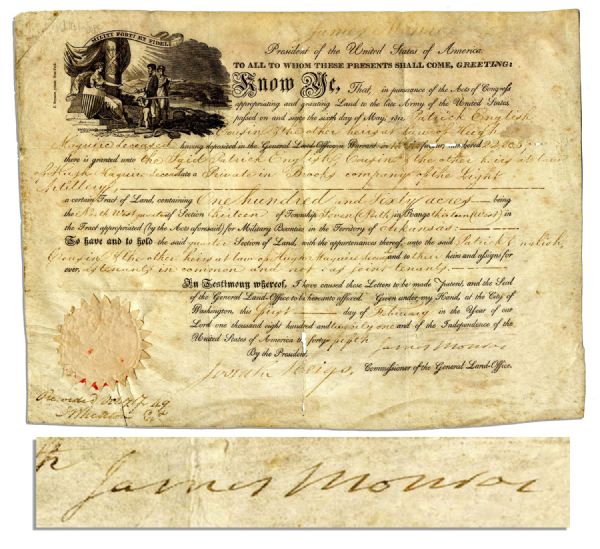 MILITI FORTI ET FIDELI
James Monroe
President of the United States of America.
TO ALL TO WHOM THESE PRESENTS SHALL COME, GREETING:
Know Ye, That, in pursuance of the Acts of Congress
appropriating and granting Land to the late Army of the United States,
passed on and since the sixth day of May, 1812, Patrick English
Cousin & the other heirs at law of Hugh
Maguire deceased having deposited in the General Land-Office a Warrant in favor numbered
there is granted unto the said Patrick English Cousin & the other heirs at law
of Hugh Maguire deceased late a Private in Brooks company of the Light
Artillery,
a certain Tract of Land, containing One hundred and Sixty acres being
the North West quarter of Section thirteen of Township Seven (North) in Range thirteen (West) in
the Tract appropriated (by the Acts aforesaid) for Military Bounties in the Territory of Arkansas:
To have and to hold the said quarter Section of Land, with the appurtenances thereof, unto the said Patrick English,
Cousin & the other heirs at law of Hugh Maguire deceased and to their heirs and assigns for
ever, as tenants in common and not as joint tenants.
In Testimony whereof, I have caused these Letters to be made Patent, and the Seal
of the General Land-Office to be hereunto affixed. Given under my Hand, at the City of
Washington, this first day of February in the Year of our
Lord one thousand eight hundred and twenty one and of the Independence of the
United States of America the forty fifth
By the President, James Monroe
Josiah Meigs, Commissioner of the General Land-Office.
Recorded Vol
James Monroe